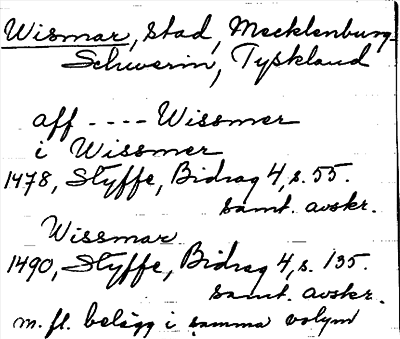 Wismar, stad, Mecklenburg-
Schwerin, Tyskland
aff ---- Wissmer
i Wissmer
1478, Styffe, Bidrag 4, s. 55.
samt. avskr.
Wissmar
1490, Styffe, Bidrag 4, s. 135.
samt. avskr.
m. fl. belägg i samma volym